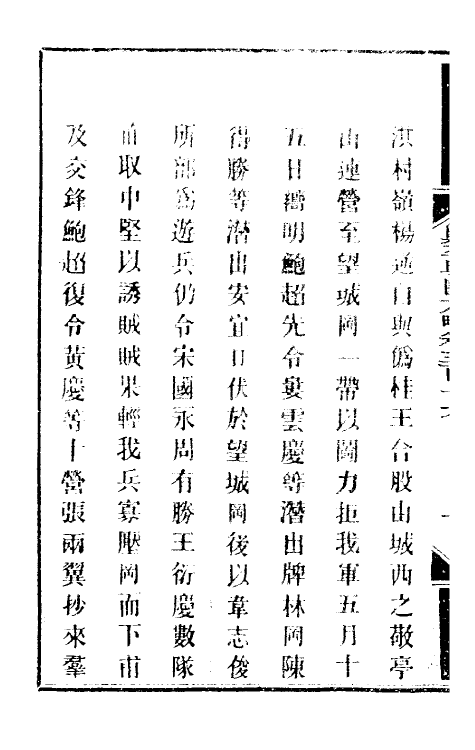 洪村嶺楊逆自與僞桂王合股由城西之敬亭
山連營至望城岡一帶以圖力拒我軍五月十
五日嚮明鮑超先令婁雲慶等潛出牌林岡陳
得勝等潛出安宜日伏於望城岡後以韋志俊
所部爲遊兵仍令宋國永周有勝王衍慶數隊
直取中堅以誘賊賊果輕我兵寡壓岡而下甫
及交鋒鮑超復令黃慶等十營張兩翼抄來羣